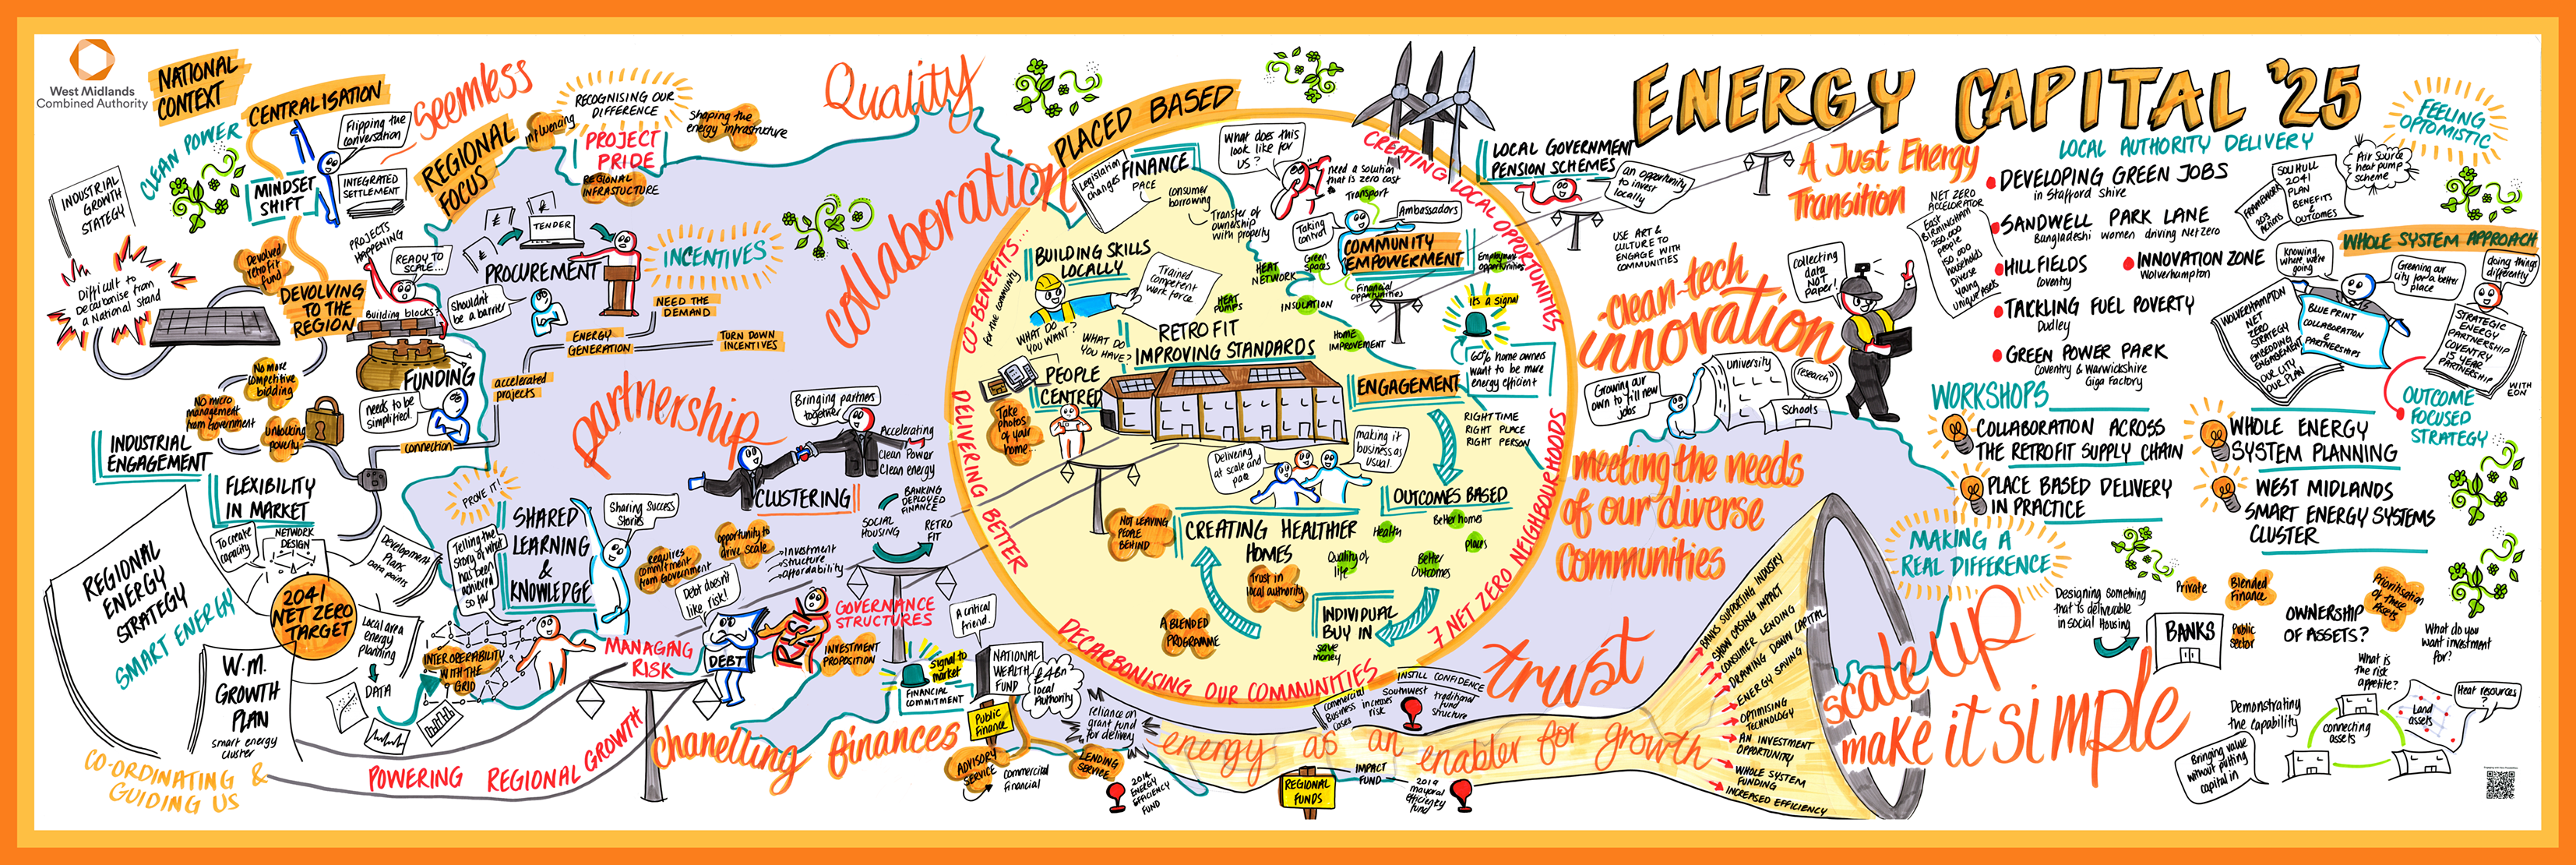 West Midlands
Combined Authority
NATIONAL
CONTEXT
CENTRALISATION
Seemless
CLEAN POWER
Flipping the
conversation
MINDSET
SHIFT
INTEGRATED
SETTLEMENT
INDUSTRIAL
GROWTH
STATEGY
REGIONAL
FOCUS
influencing
RECOGNISING OUR
DIFFERENCE
PROJECT
PRIDE
REGIONAL
INFRASTUCTURE
Shaping the
energy infrastructure
Difficult to
Decarbonise from
a National stand
Devolved
retrofit
fund
DEVOLVING
TO THE
REGION
PROJECTS
HAPPENING
READY TO
SCALE...
Building blocks?
TENDER
PROCUREMENT
Shouldn't
be a barrier
INCENTIVES
NEED THE
DEMAND
ENERGY
GENERATION
TURN DOWN
INCENTIVES
accelerated
projects
FUNDING
needs to be
simplified.
connection
No more
competitive
bidding
No micro
management
from Government
unlocking
poverty
INDUSTRIAL
ENGAGEMENT
FLEXIBILITY
IN MARKET
To create
capacity
NETWORK
DESIGN
Development
Plans
Data points
REGIONAL
ENERGY
STRATEGY
SMART ENERGY
2041
NET ZERO
TARGET
W.M.
GROWTH
PLAN
smart energy
cluster
Local area
energy
planning
DATA
INTEROPERABILITY
WITH THE
GRID
CO-ORDINATING &
GUIDING US
POWERING REGIONAL GROWTH
PROVE IT!
Telling the
story of what
has been
achieved
so far
SHARED
LEARNING
&
KNOWLEDGE
Sharing success
stories
partnership
Bringing partners
together
Accelerating
Clean Power
Clean energy
CLUSTERING
BANKING
DEPLOYED
FINANCE
SOCIAL
HOUSING
RETRO
FIT
requires
commitment
from Government
opportunity to
drive scale
Investment
Structure
Affordability
Debt doesn't
like risk!
DEBT
RISK
MANAGING
RISK
GOVERNANCE
STRUCTURES
INVESTMENT
PROPOSITION
A critical
friend.
signal to
market
FINANCIAL
COMMITMENT
NATIONAL
WEALTH
FUND
£4Bn
local
Authority
Public
Finance
ADVISORY
SERVICE
commercial
Financial
LENDING
SERVICE
reliance on
grant fund
for delivery
2014
ENERGY
EFFICIENCY
FUND
chanelling finances
Quality
collaboration
PLACED BASED
CO-BENEFITS...
for the community
DELIVERING BETTER
DECARBONISING OUR COMMUNITIES
7 NET ZERO NEIGHBOURHOODS
CREATING LOCAL OPPORTUNITIES
Legislation
changes
FINANCE
PACE
consumer
borrowing
Transfer of
ownership
with property
What does this
look like for
us?
need a solution
that is zero cost
Transport
Ambassadors
Taking
control
COMMUNITY
EMPOWERMENT
Employment
opportunities
Green
spaces
Financial
opportunities
HEAT
NETWORK
INSULATION
HEAT
PUMPS
HOME
IMPROVEMENT
BUILDING SKILLS
LOCALLY
Trained
competent
work force
WHAT DO
YOU WANT?
WHAT DO
YOU HAVE?
RETROFIT
IMPROVING STANDARDS
PEOPLE
CENTRED
Take
photos
of your
home...
it's a signal
60% home owners
want to be more
energy efficient
ENGAGEMENT
RIGHT TIME
RIGHT PLACE
RIGHT PERSON
Delivering
at scale and
pace
making it
business as
usual.
NOT LEAVING
PEOPLE
BEHIND
CREATING HEALTHIER
HOMES
OUTCOMES BASED
Health
Better homes
places
Quality of
life
Better
Outcomes
Trust in
local authority
A BLENDED
PROGRAMME
INDIVIDUAL
BUY IN
save
money
LOCAL GOVERNMENT
PENSION SCHEMES
an opportunity
to invest
locally
USE ART &
CULTURE TO
ENGAGE WITH
COMMUNITIES
commercial
Business
cases
increases
risk
SOUTHWEST
INSTILL CONFIDENCE
traditional
fund
structure
energy as an enabler for growth
REGIONAL
FUNDS
IMPACT
FUND
2019
mayoral
efficiency
fund
trust
ENERGY CAPITAL '25
A Just Energy
Transition
clean-tech
innovation
collecting
data
NOT
paper!
Growing our
own to fill new
jobs
University
research
Schools
meeting the needs
of our diverse
Communities
BANKS SUPPORTING INDUSTRY
SHOW CASING IMPACT
CONSUMER LENDING
DRAWING DOWN CAPITAL
ENERGY SAVING
OPTIMISING
TECHNOLOGY
AN INVESTMENT
OPPORTUNITY
WHOLE SYSTEM
FUNDING
INCREASED EFFICIENCY
scale up
make it simple
LOCAL AUTHORITY DELIVERY
FEELING
OPTOMISTIC
DEVELOPING GREEN JOBS
in Stafford Shire
NET ZERO
ACCELERATOR
East
Birmingham
250,000
people
150,000
households
Diverse
Young
Unique Assets
SANDWELL PARK LANE
Bangladeshi women driving Net zero
HILLFIELDS
Coventry
INNOVATION ZONE
Wolverhampton
TACKLING FUEL POVERTY
Dudley
GREEN POWER PARK
Coventry & Warwickshire
Giga Factory
FRAMEWORK
203
ACTIONS
SOLIHULL
2041
PLAN
BENEFITS
&
OUTCOMES
Air Source
heat pump
scheme
WHOLE SYSTEM APPROACH
Knowing
where we're
going
Greening our
city for a better
place
doing things
differently
WOLVERHAMPTON
NET
ZERO
STRATEGY
EMBEDDING
ENGAGEMENT
OUR CITY
OUR PLAN
BLUE PRINT
COLLABORATION
&
PARTNERSHIPS
STRATEGIC
ENERGY
PARTNERSHIP
COVENTRY
15 YEAR
PARTNERSHIP
WITH
EON
OUTCOME
FOCUSED
STRATEGY
WORKSHOPS
COLLABORATION ACROSS
THE RETROFIT SUPPLY CHAIN
PLACE BASED DELIVERY
IN PRACTICE
WHOLE ENERGY
SYSTEM PLANNING
WEST MIDLANDS
SMART ENERGY SYSTEMS
CLUSTER
MAKING A
REAL DIFFERENCE
Designing something
that is deliverable
in social housing
Private
Blended
Finance
BANKS
Public
sector
OWNERSHIP
OF ASSETS?
Prioritisation
of these
Assets
What do you
want investment
for?
What is
the risk
appetite?
Heat resources
?
Land
assets
connecting
assets
Demonstrating
the capability
Bringing value
without putting
capital in